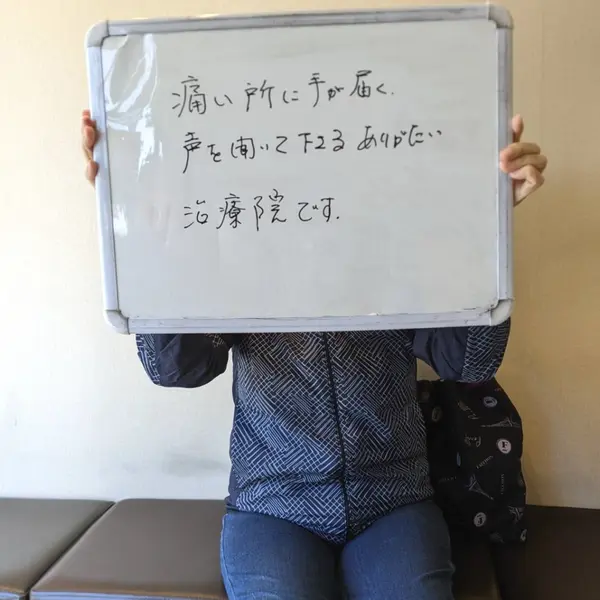 痛い所に手が届く、
声を聞いて下さる ありがたい
治療院です.